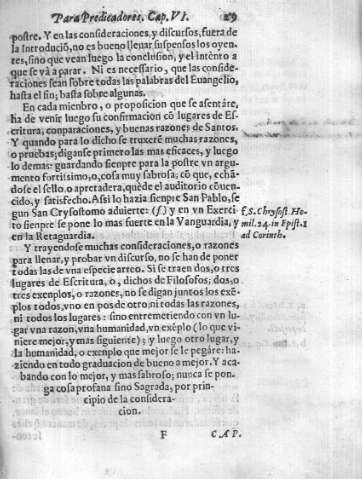 Para Predicadores, Cap. VI. 29
postre. Y en las consideraciones, y discursos, fuera de
la Introduciō, no es bueno llevar suspensos los oyen-
tes, sino que vean luego la conclusion, y el intento a
que se và a parar. Ni es necessario, que las conside-
raciones sean sobre todas las palabras del Euangelio,
hasta el fin; basta sobre algunas.
En cada miēbro, o proposicion que se asentàre,
ha de venir luego su confirmacion cō lugares de Es-
critura, conparaciones, y buenas razones de Santos.
Y quando para lo dicho se truxerē muchas razones,
o pruebas; diganse primero las mas eficaces, y luego
lo demas: guardando sienpre para la postre vn argu-
mento fortissimo, o, cosa muy sabrosa; cō que, echā-
dose el sello, o apretadera, quède el auditorio cōuen-
cido, y satisfecho. Assi lo hazia sienpre San Pablo, se
gun San Crysostomo aduierte: (f.) y en vn Exerci-
to sienpre se pone lo mas fuerte en la Vanguardia, y
en la Retaguardia.
f. S. Chrysost. Ho-
mil. 24. in Epist. 1
ad Corinth.
Y trayendose muchas consideraciones, o razones
para llenar, y probar vn discurso, no se han de poner
todas las de vna especie arreo. Si se traen dos, o tres
lugares de Escritura, o, dichos de Filosofos; dos, o
tres exenplos, o razones, no se digan juntos los exē-
plos todos, vno en pos de otro, ni todas las razones,
ni todos los lugares: sino entremetiendo con vn lu-
gar vna razon, vna humanidad, vn exēplo (lo que vi-
niere mejor, y mas siguiente); y luego otro lugar, y
la humanidad, o exenplo que mejor se le pegàre: ha-
ziendo en todo graduacion de bueno a mejor. Y aca-
bando con lo mejor, y mas sabroso; nunca se pon-
ga cosa profana sino Sagrada, por prin-
cipio de la considera-
cion.
F CAP.